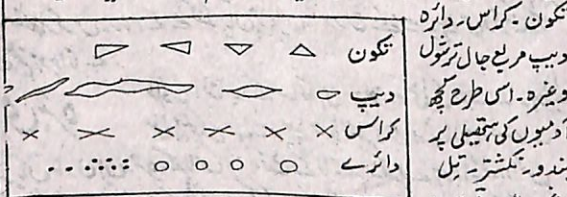 تکون - کراس - دائرہ
دیپ مربع جال ترشول
وغیرہ - اسی طرح کچھ
آدمیوں کی ہتھیلی پر
بندو - نکشتر - تل
تکون
دیپ
کراس
دائرے